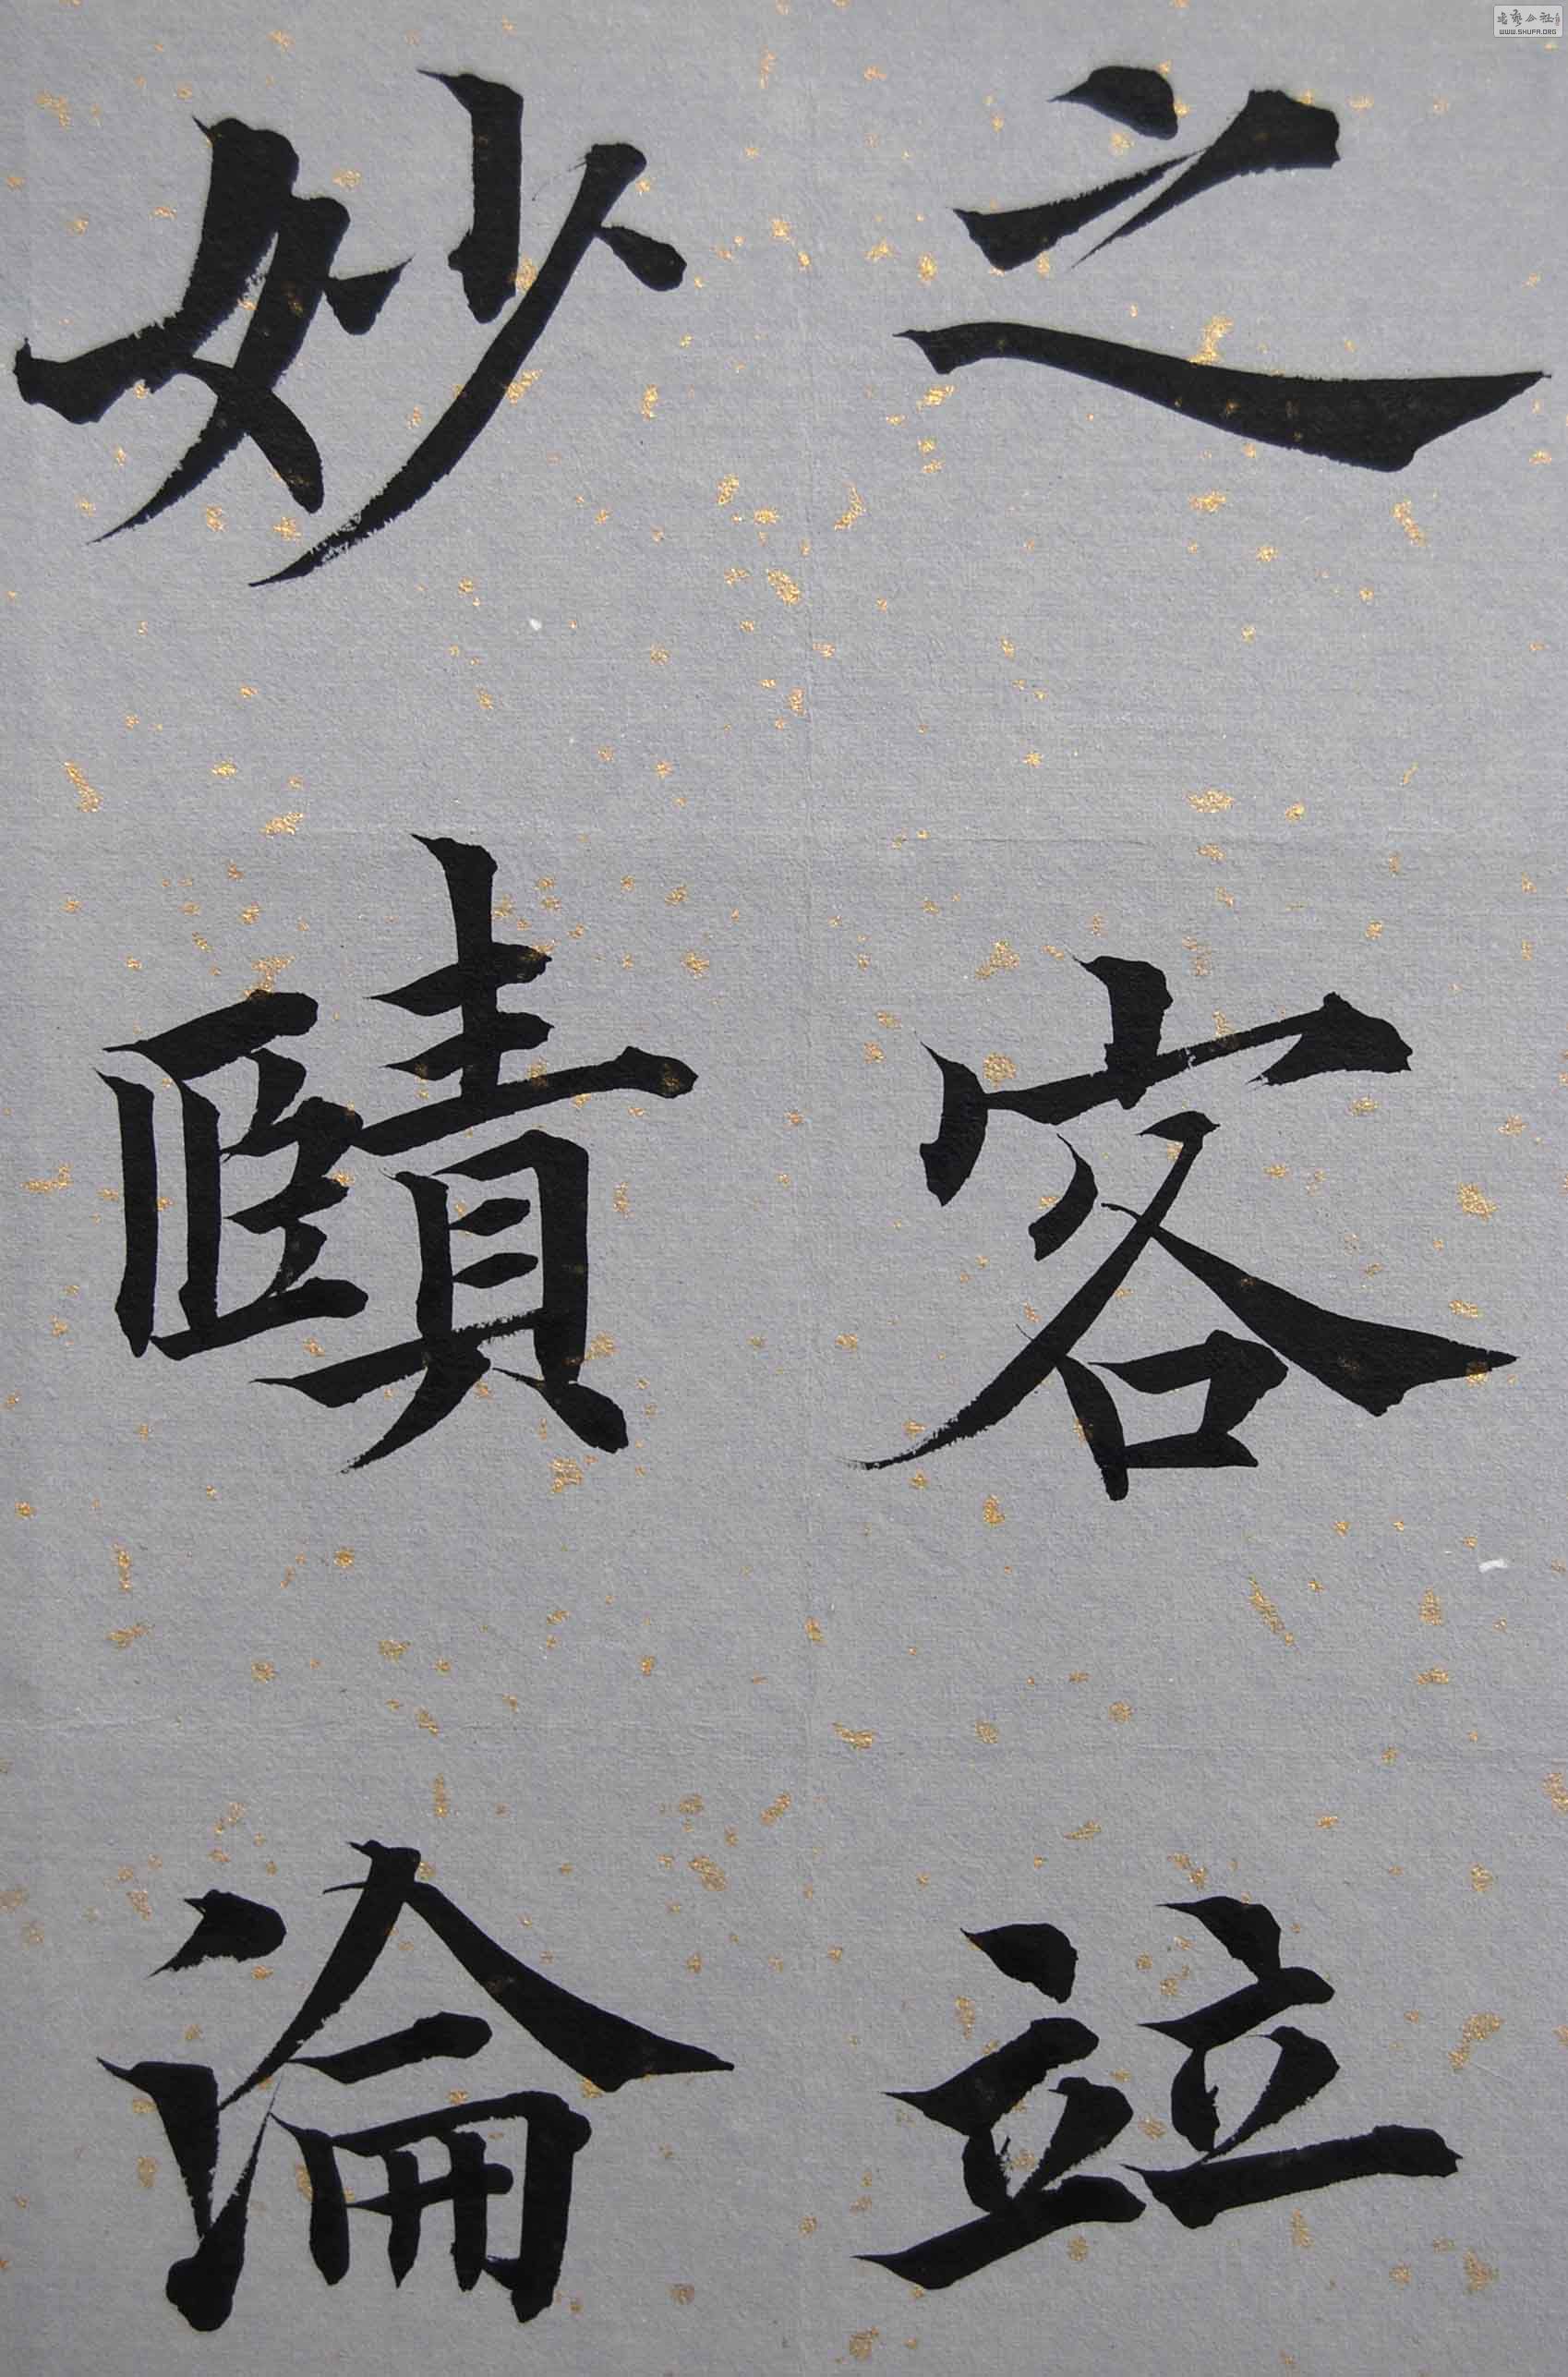 之客竝
妙賾淪
書藝公社
WWW.SHUFA.ORG